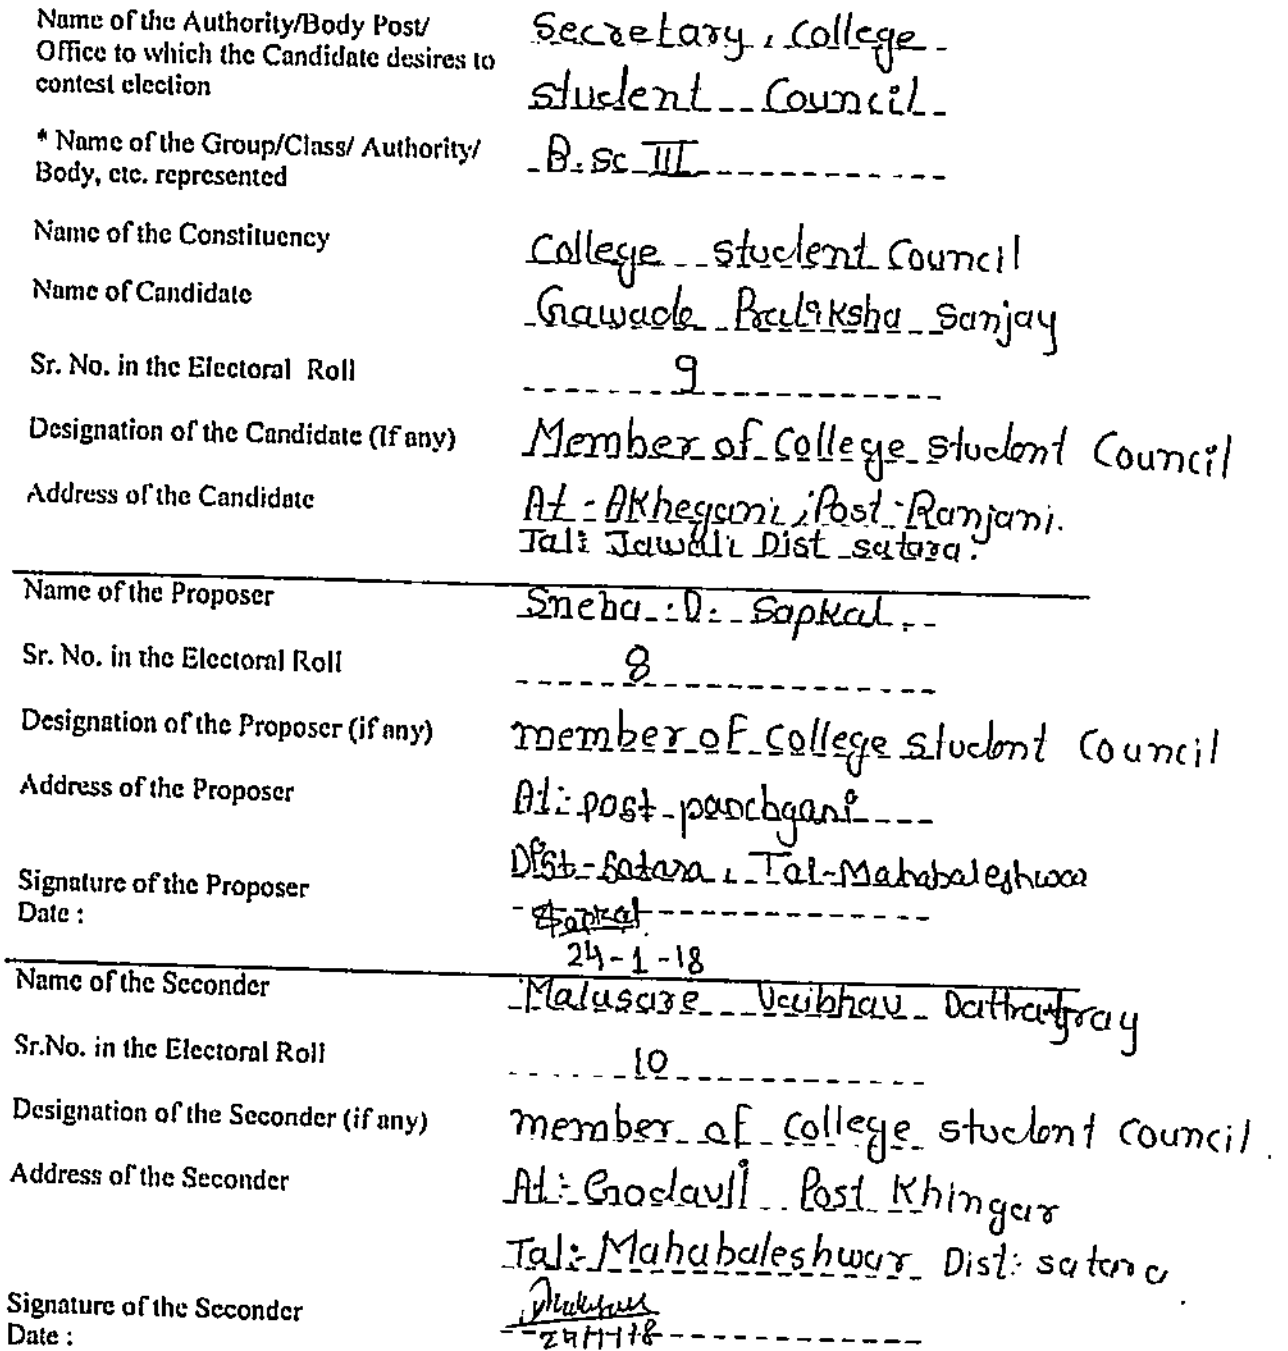 Name of the Authority/Body Post/ Secretary, College
Office to which the Candidate desires to
contest election student Council
* Name of the Group/Class/ Authority/ B.sc III
Body, etc. represented
Name of the Constituency College student Council
Name of Candidate Gawade Pratiksha Sanjay
Sr. No. in the Electoral Roll 9
Designation of the Candidate (If any) Member of College student Council
Address of the Candidate At - Akhegani, Post - Ranjani.
Tal: Jawali Dist satara.
Name of the Proposer Sneha . D. Sapkal.
Sr. No. in the Electoral Roll 8
Designation of the Proposer (if any) member of College student Council
Address of the Proposer At: post - panchgani
Dist - Satara, Tal - Mahabaleshwar
Signature of the Proposer Sapkal
Date : 24-1-18
Name of the Seconder Malusare Vaibhav Dattatray
Sr.No. in the Electoral Roll 10
Designation of the Seconder (if any) member of College student Council.
Address of the Seconder At:- Godavli Post Khingar
Tal:- Mahabaleshwar Dist: satara.
Signature of the Seconder
Date : 24/1/18